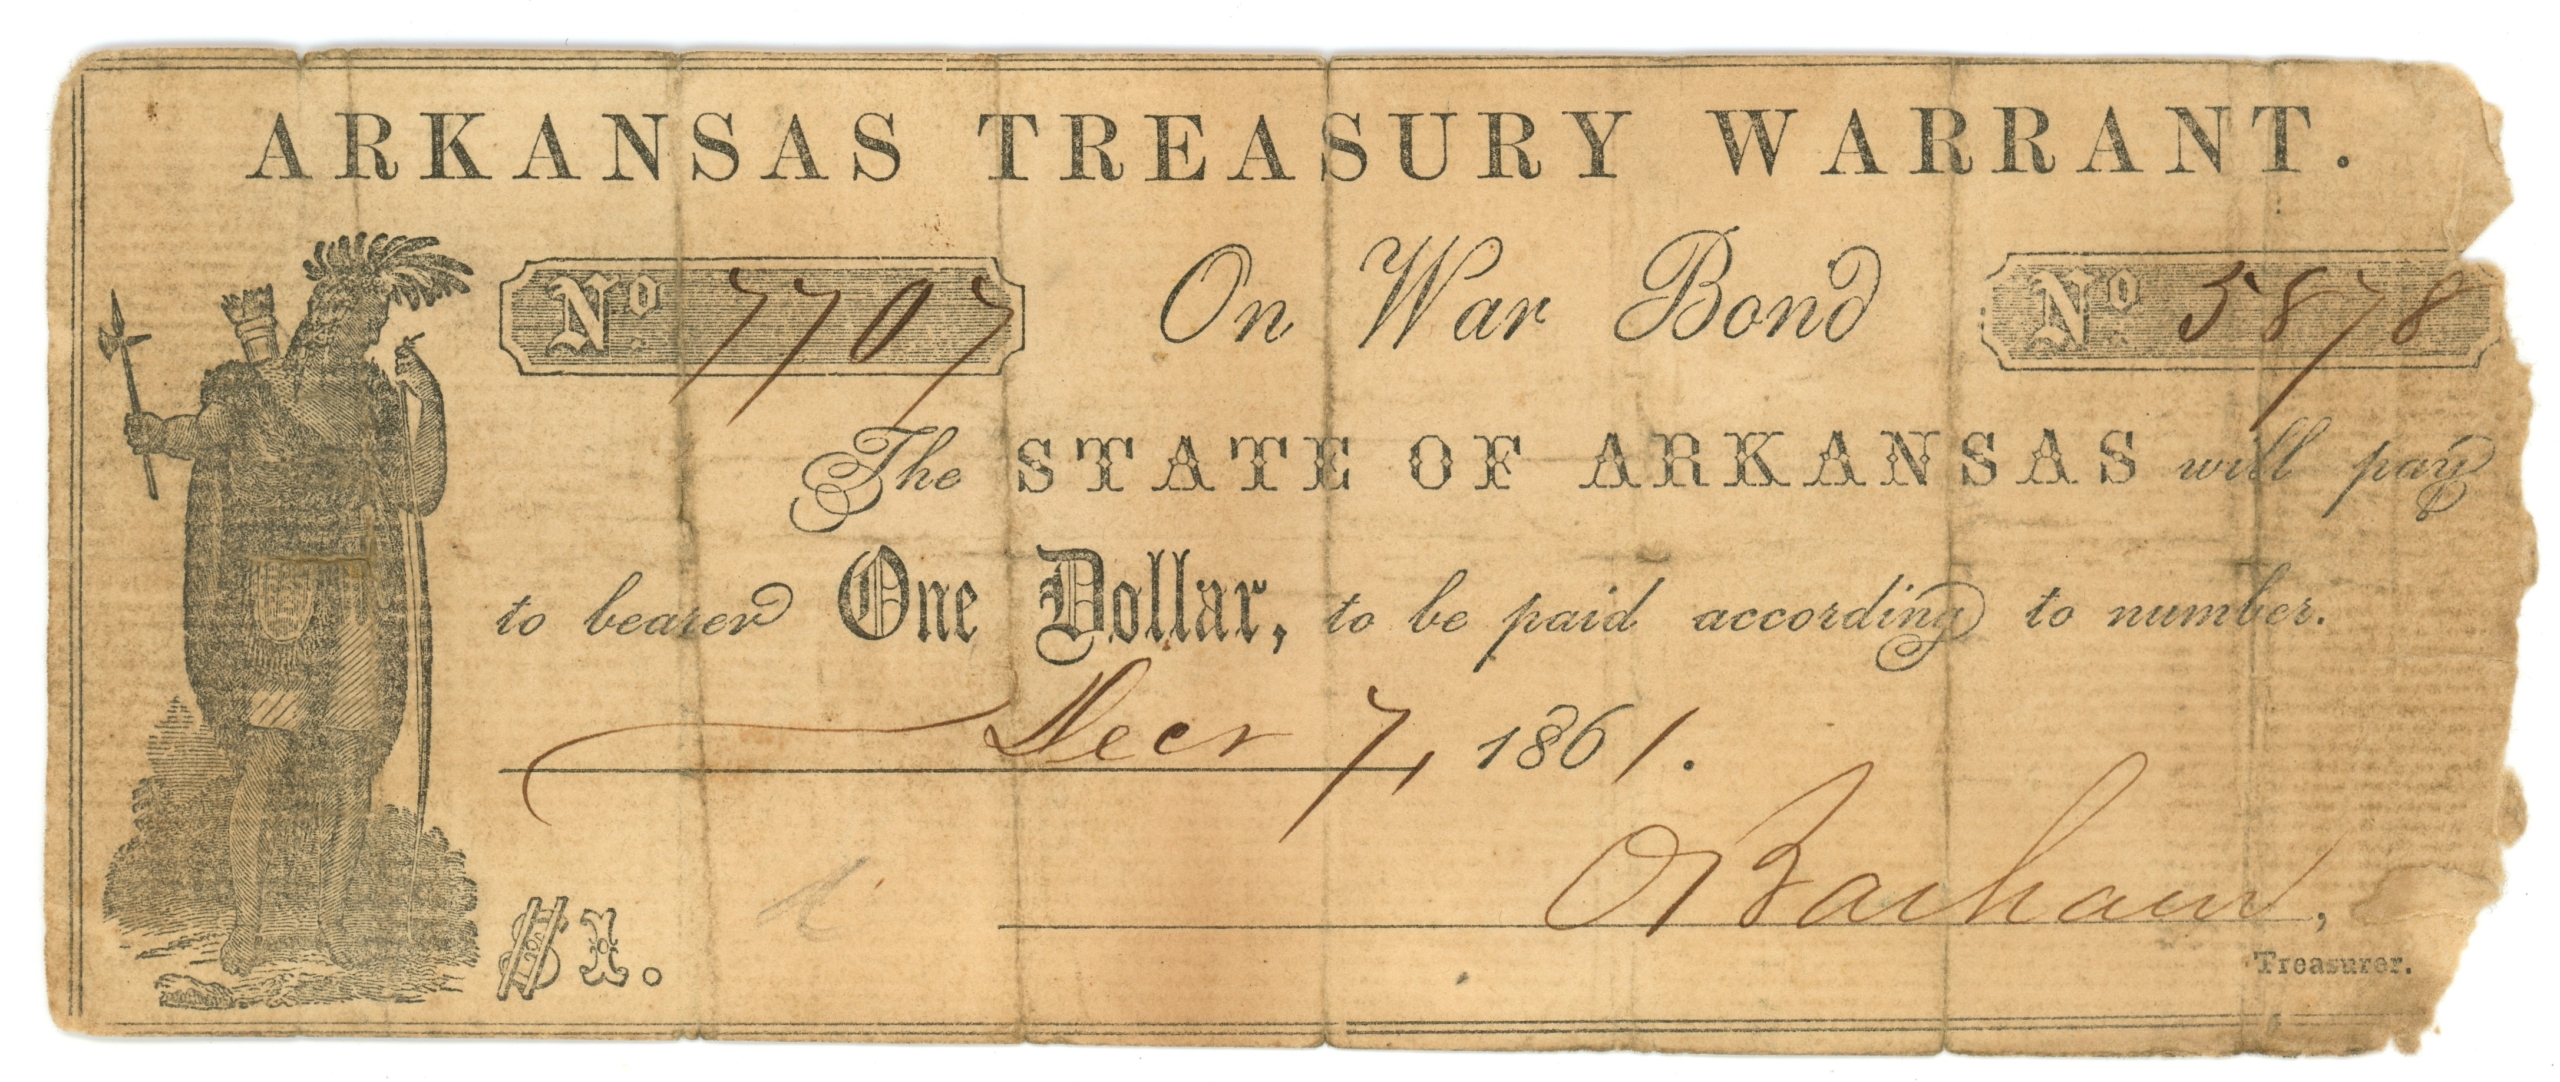 ARKANSAS TREASURY WARRANT.
No 7707 On War Bond No 5878
The STATE OF ARKANSAS will pay
to bearer One Dollar, to be paid according to number.
Decr 7, 1861.
O Basham,
$1.
Treasurer.